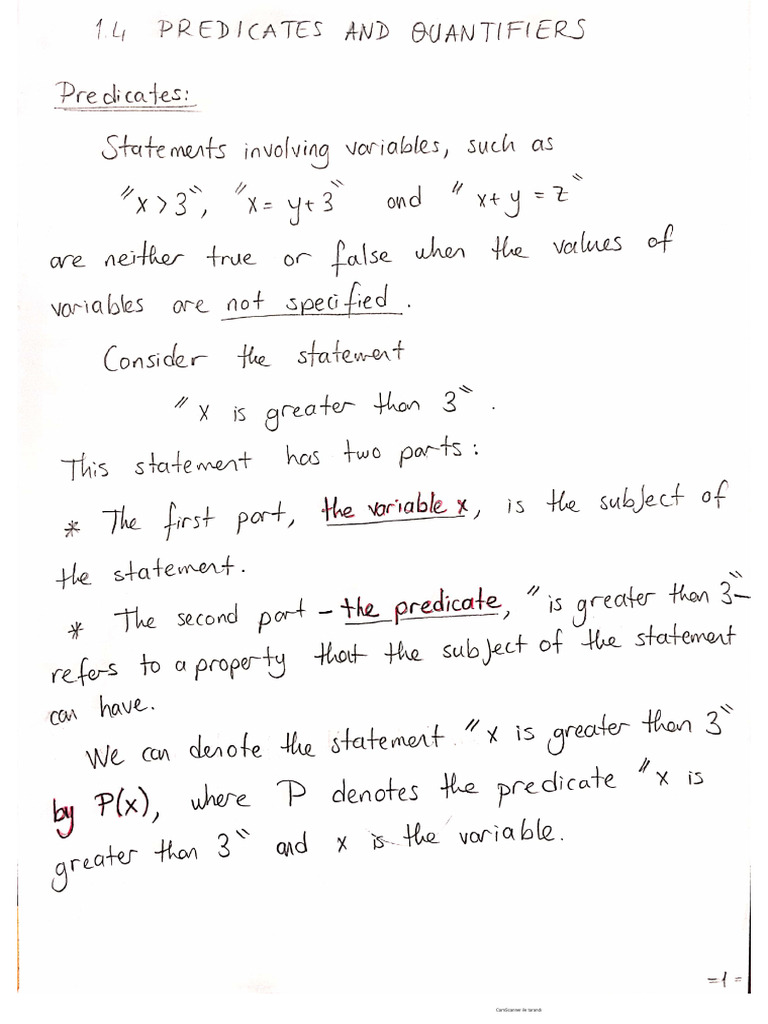 1.4 PREDICATES AND QUANTIFIERS
Predicates:
Statements involving variables, such as
"x > 3", "x = y + 3" and "x + y = z"
are neither true or false when the values of
variables are not specified.
Consider the statement
"x is greater than 3".
This statement has two parts:
* The first part, the variable x, is the subject of
the statement.
* The second part – the predicate, "is greater than 3" –
refers to a property that the subject of the statement
can have.
We can denote the statement "x is greater than 3"
by P(x), where P denotes the predicate "x is
greater than 3" and x is the variable.
=1=
CamScanner ile tarandı